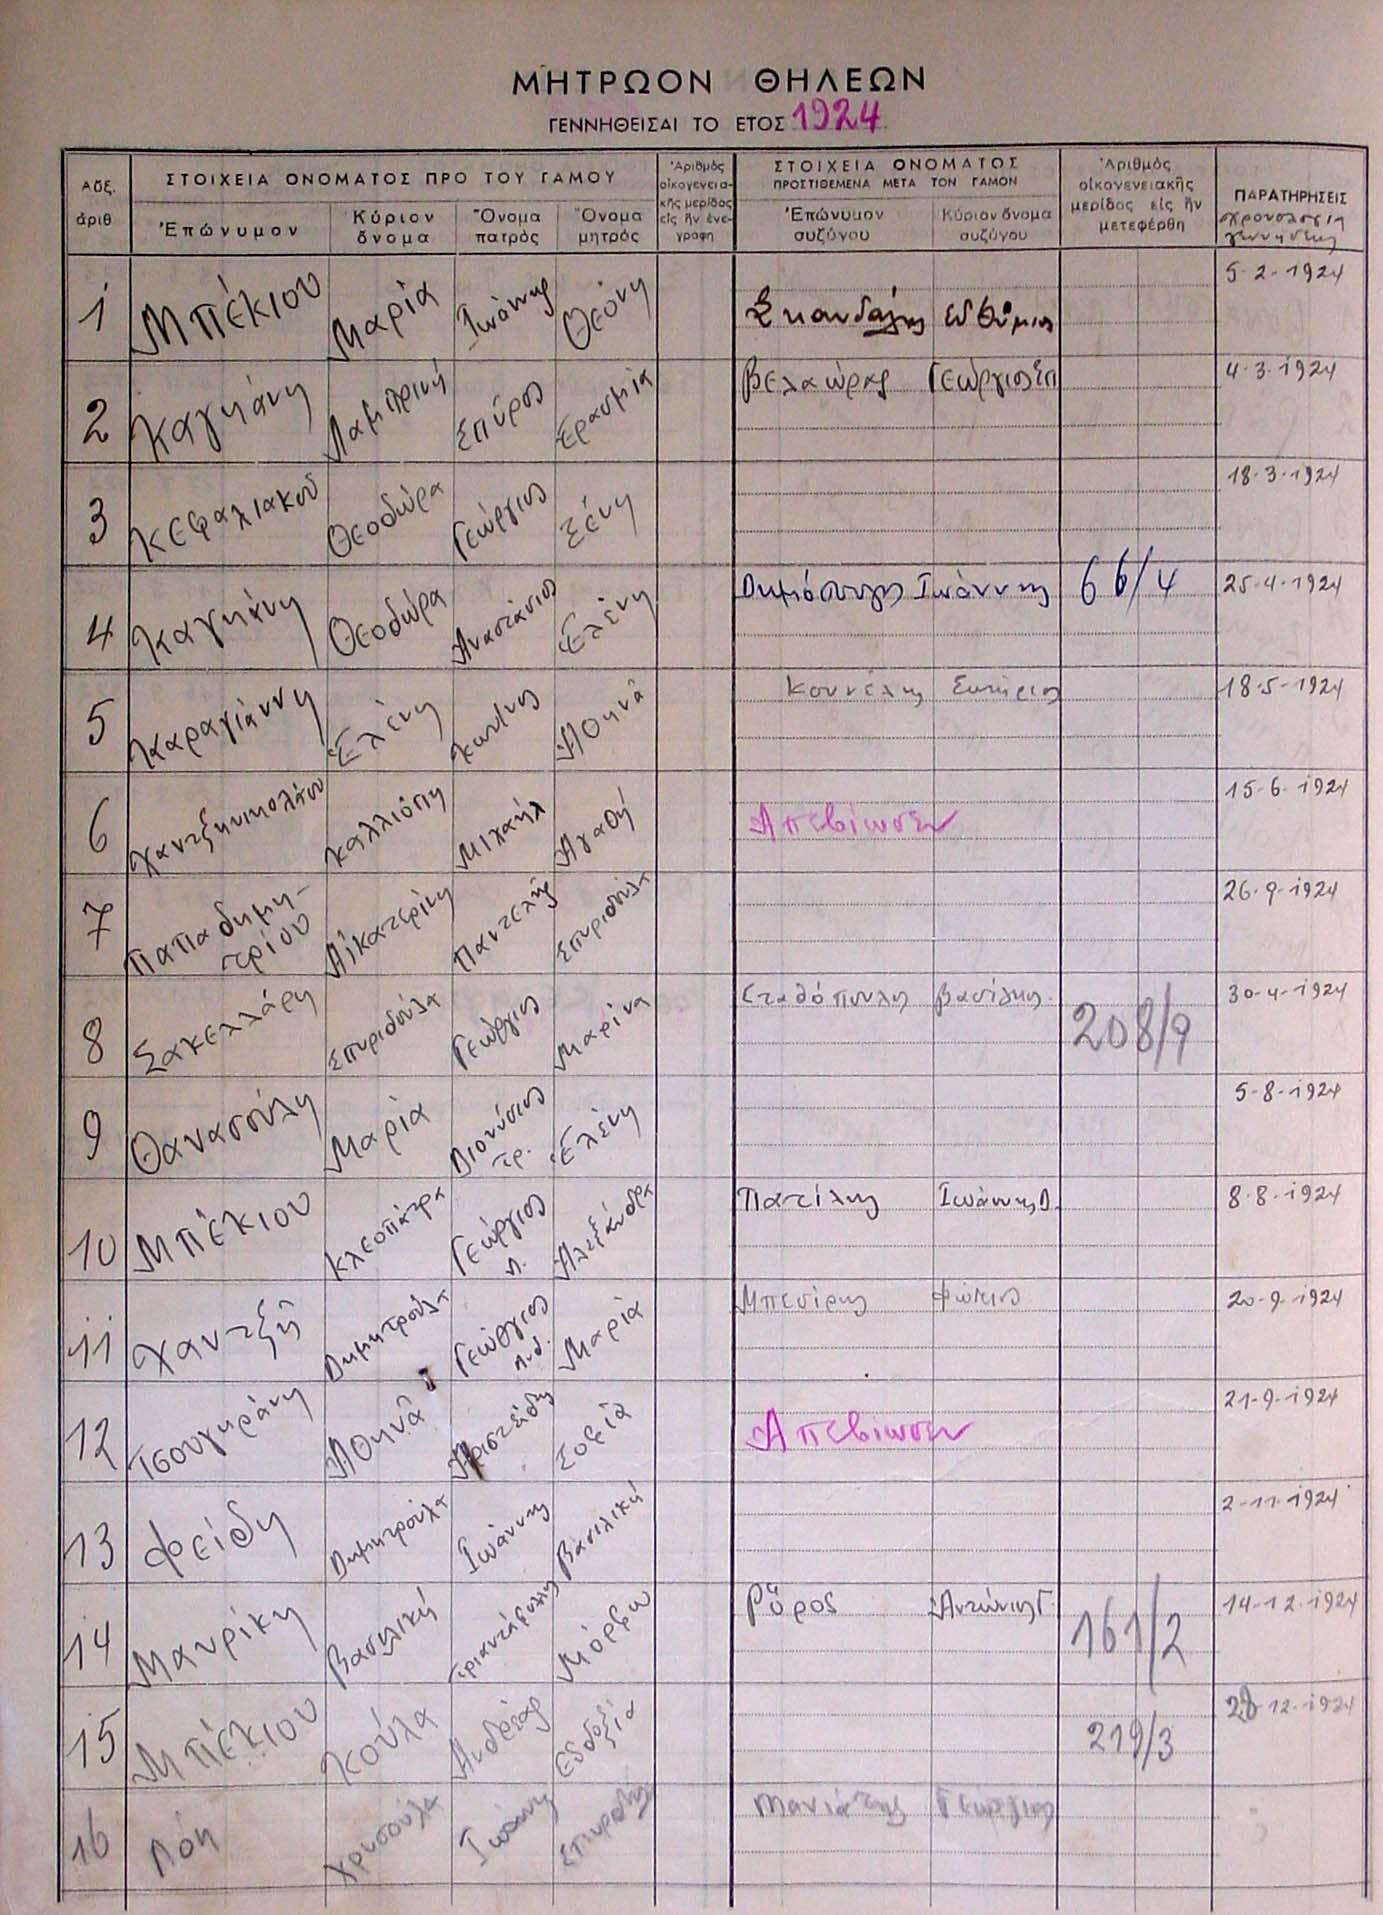 ΜΗΤΡΩΟΝ ΘΗΛΕΩΝ
ΓΕΝΝΗΘΕΙΣΑΙ ΤΟ ΕΤΟΣ 1924
Αὔξ. ἀριθ
ΣΤΟΙΧΕΙΑ ΟΝΟΜΑΤΟΣ ΠΡΟ ΤΟΥ ΓΑΜΟΥ
Ἐπώνυμον Κύριον ὄνομα Ὄνομα πατρὸς Ὄνομα μητρὸς
Ἀριθμὸς οἰκογενειακῆς μερίδος εἰς ἣν ἐνεγράφη
ΣΤΟΙΧΕΙΑ ΟΝΟΜΑΤΟΣ ΠΡΟΣΤΙΘΕΜΕΝΑ ΜΕΤΑ ΤΟΝ ΓΑΜΟΝ
Ἐπώνυμον συζύγου Κύριον ὄνομα συζύγου
Ἀριθμὸς οἰκογενειακῆς μερίδος εἰς ἣν μετεφέρθη
ΠΑΡΑΤΗΡΗΣΕΙΣ χρονολογία γεννήσεως
1 Μπέκιου Μαρία Ἰωάννης Θεόνη Σκανδάλης Εὐθύμιος 5-2-1924
2 Καγκάνη Λαμπρινή Σπύρος Ερασμία Γεώργιος Σπ 4-3-1924
3 Κεφαλιακού Θεοδώρα Γεώργιος Ξένη 18-3-1924
4 Καγκάνη Θεοδώρα Αναστάσιος Ἑλένη Ἰωάννης 66/4 25-4-1924
5 Καραγιάννη Ἑλένη Κων/νος Ἀθηνᾶ Κουνέλης Σωτήριος 18-5-1924
6 Χαντζηνικολάου Καλλιόπη Μιχαήλ Ἀγαθή Ἀπεβίωσεν 15-6-1924
7 Παπαδημητρίου Αἰκατερίνη Παντελῆς Σπυριδούλα 26-9-1924
8 Σακελλάρη Σπυριδούλα Γεώργιος Μαρίνα Σταθόπουλος Βασίλης 208/9 30-4-1924
9 Θανασούλη Μαρία Διονύσιος τρ. Ἑλένη 5-8-1924
10 Μπέκιου Κλεοπάτρα Γεώργιος Δ. Ἀλεξάνδρα Πατίλης Ἰωάννης Δ. 8-8-1924
11 Χαντζῆ Δημητρούλα Γεώργιος Μαρία Μπεσίρης Φώτιος 20-9-1924
12 Τσουγκράνη Ἀθηνᾶ Ἀριστείδης Σοφία Ἀπεβίωσεν 21-9-1924
13 Φείδη Δημητρούλα Ἰωάννης Βασιλική 2-11-1924
14 Μαυρίκη Βασιλική Τριαντάφυλλος Μόρφω Ἀντώνιος Γ. 161/2 14-12-1924
15 Μπέκιου Κούλα Ἀνδρέας Εὐδοξία 219/3 28-12-1924
16 Λόη Χρυσούλα Ἰωάννης Μανιάτης Γεώργιος